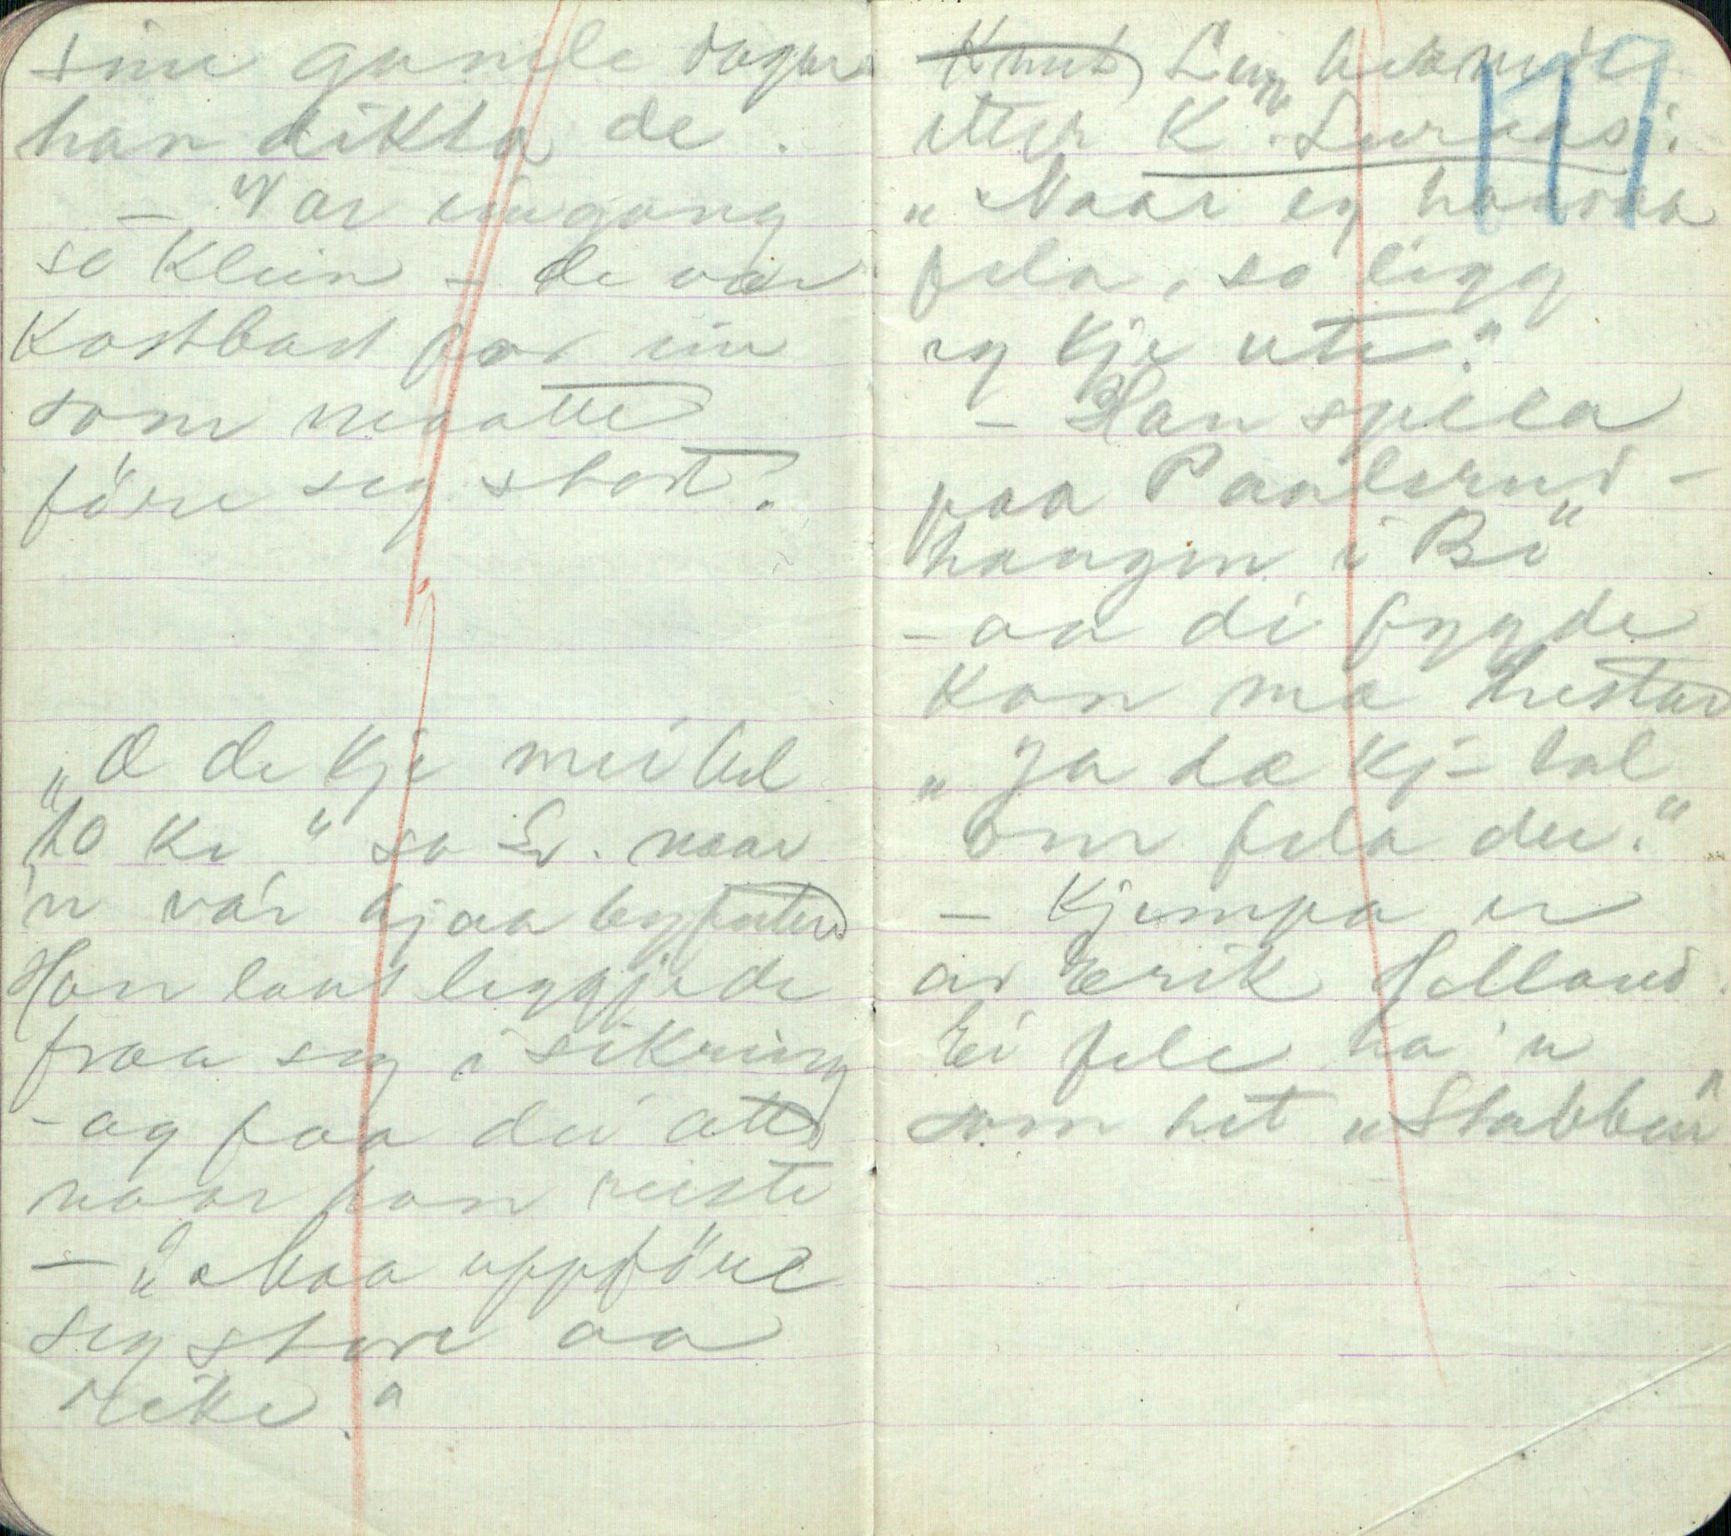 sine gamle dagar
han dikta de.
- Var eingong
so klein - de var
kostbart for ein
som maatte
före seg stort.
"O de kje mei hel
10 kr" sa Ev. naar
'n var hjaa byfuten
Han laut leggje de
fraa seg i sikring
- og faa dei att
naar han reiste
- "Se maa uppföre
seg store aa
rike"
Knut
etter K. Lureaas:
119
"Naar eg haaraa
fela, so ligg
eg kje ute."
- Han spela
paa Paalsrud-
haugen i Bö
- aa di fygde
kon mæ hestar
"Ja dæ kj- tal
om fela dei."
- Kjempa er
av Erik Helland.
Ei fele ha 'n
som het "Stabbein"